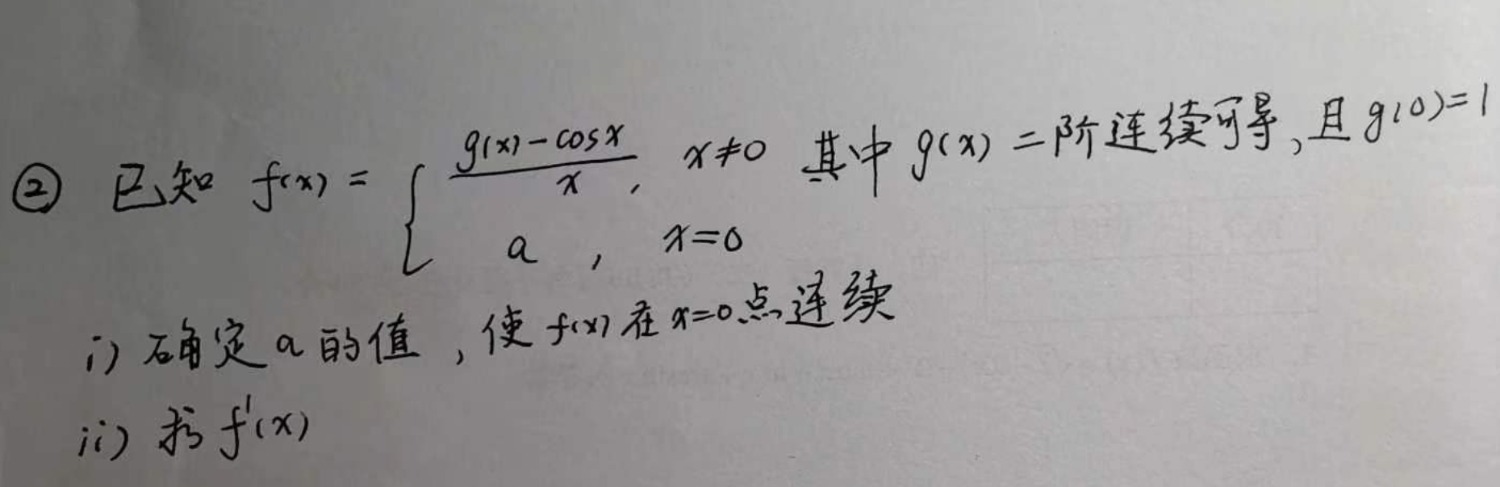 ② 已知 f(x) = { g(x)-cosx / x , x≠0 其中 g(x) 二阶连续可导, 且 g(0)=1
a , x=0
i) 确定 a 的值 , 使 f(x) 在 x=0 点连续
ii) 求 f'(x)